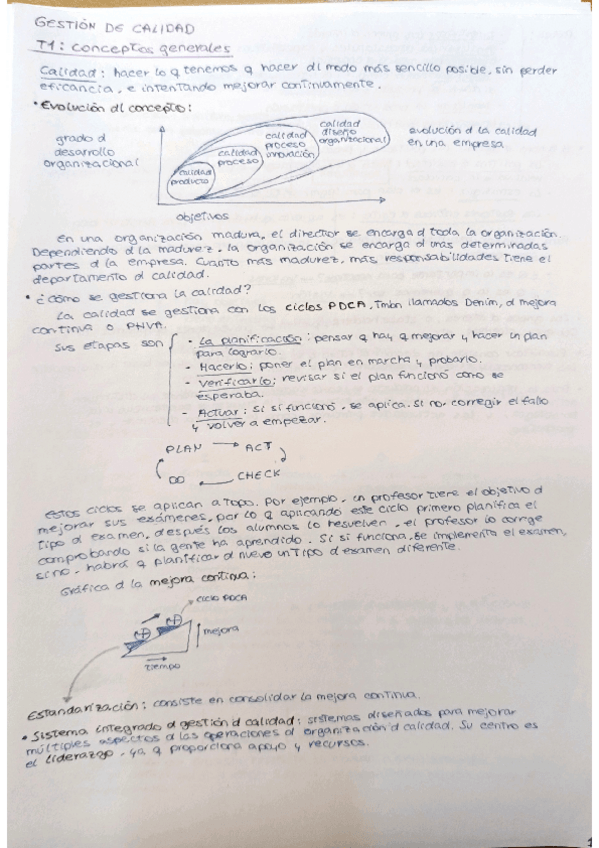 GESTIÓN DE CALIDAD
T1: conceptos generales
Calidad: hacer lo q tenemos q hacer dl modo más sencillo posible, sin perder
eficancia, e intentando mejorar continuamente.
• Evolución dl concepto:
grado d
desarrollo
organizacional
calidad
producto
calidad
proceso
calidad
proceso
innovación
calidad
diseño
organizacional
evolución d la calidad
en una empresa
objetivos
En una organización madura, el director se encarga d toda la organización.
Dependiendo d la madurez, la organización se encarga d unas determinadas
partes d la empresa. Cuanto más madurez, más responsabilidades tiene el
departamento d calidad.
• ¿cómo se gestiona la calidad?
La calidad se gestiona con los ciclos PDCA, Tmbn llamados Denim, d mejora
continua o PHVA.
Sus etapas son
- La planificación: pensar q hay q mejorar y hacer un plan
para lograrlo.
- Hacerlo: poner el plan en marcha y probarlo.
- Verificarlo: revisar si el plan funcionó como se
esperaba.
- Actuar: Si sí funcionó, se aplica. Si no, corregir el fallo
y volver a empezar.
PLAN → ACT
DO ← CHECK
Estos ciclos se aplican a TODO. Por ejemplo, un profesor tiene el objetivo d
mejorar sus exámenes, por lo q aplicando este ciclo primero planifica el
tipo d examen, después los alumnos lo resuelven, el profesor lo corrige
comprobando si la gente ha aprendido. Si sí funciona, se implementa el examen,
si no, habrá q planificar d nuevo un tipo d examen diferente.
Gráfica d la mejora continua:
CICLO PDCA
mejora
tiempo
Estandarización: consiste en consolidar la mejora continua.
• Sistema integrado d gestión d calidad: sistemas diseñados para mejorar
múltiples aspectos d las operaciones d organización d calidad. Su centro es
el liderazgo, ya q proporciona apoyo y recursos.
1